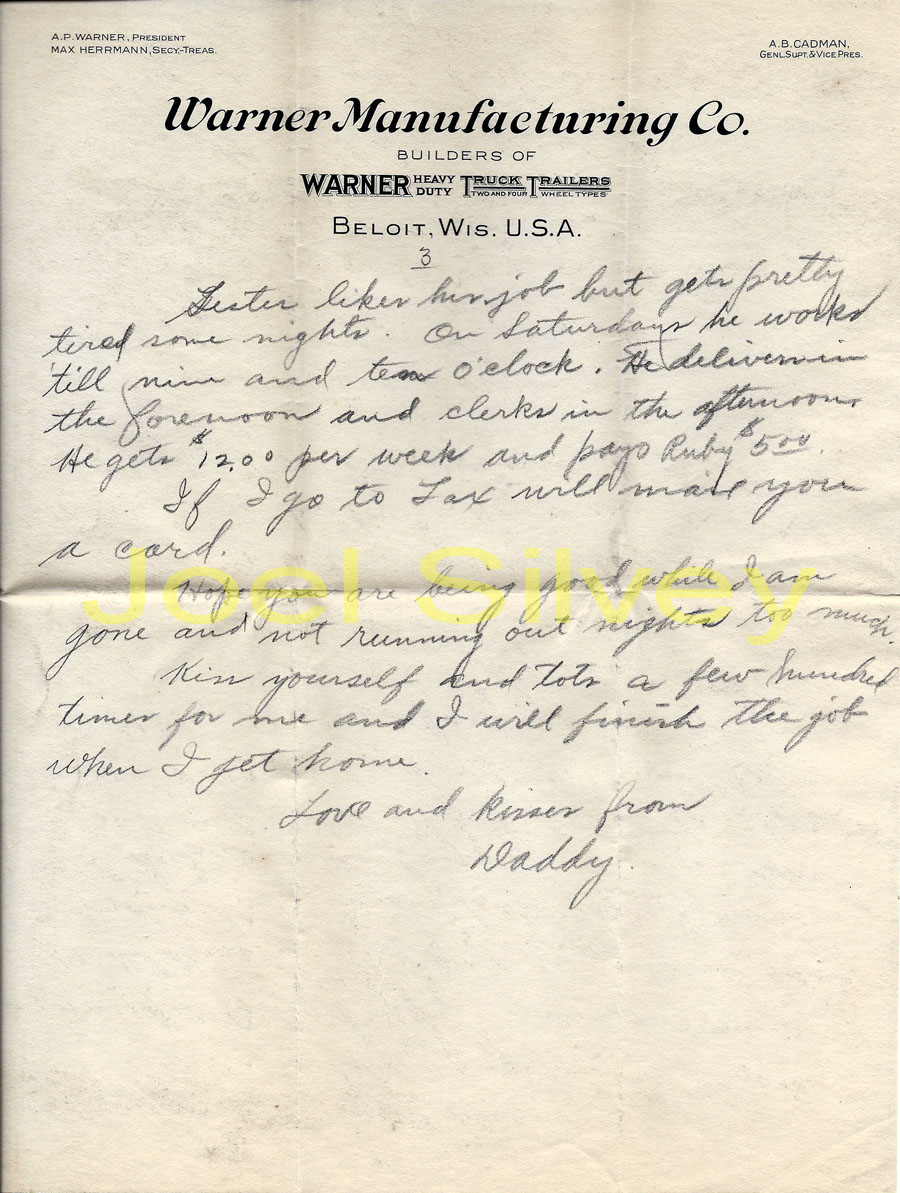 A.P. WARNER, PRESIDENT
MAX HERRMANN, SECY.-TREAS.
A.B. CADMAN,
GENL. SUPT. & VICE PRES.
Warner Manufacturing Co.
BUILDERS OF
WARNER HEAVY DUTY TRUCK TRAILERS
TWO AND FOUR WHEEL TYPES
BELOIT, WIS. U.S.A.
3
Lester likes his job but gets pretty
tired some nights. On Saturdays he works
'till nine and ten O'clock. He delivers in
the forenoon and clerks in the afternoon.
He gets $12.00 per week and pays Ruby $5.00.
If I go to Lax will mail you
a card.
Joel Silvey
Hope you are being good while I am
gone and not running out nights too much.
Kiss yourself and tots a few hundred
times for me and I will finish the job
when I get home.
Love and kisses from
Daddy.